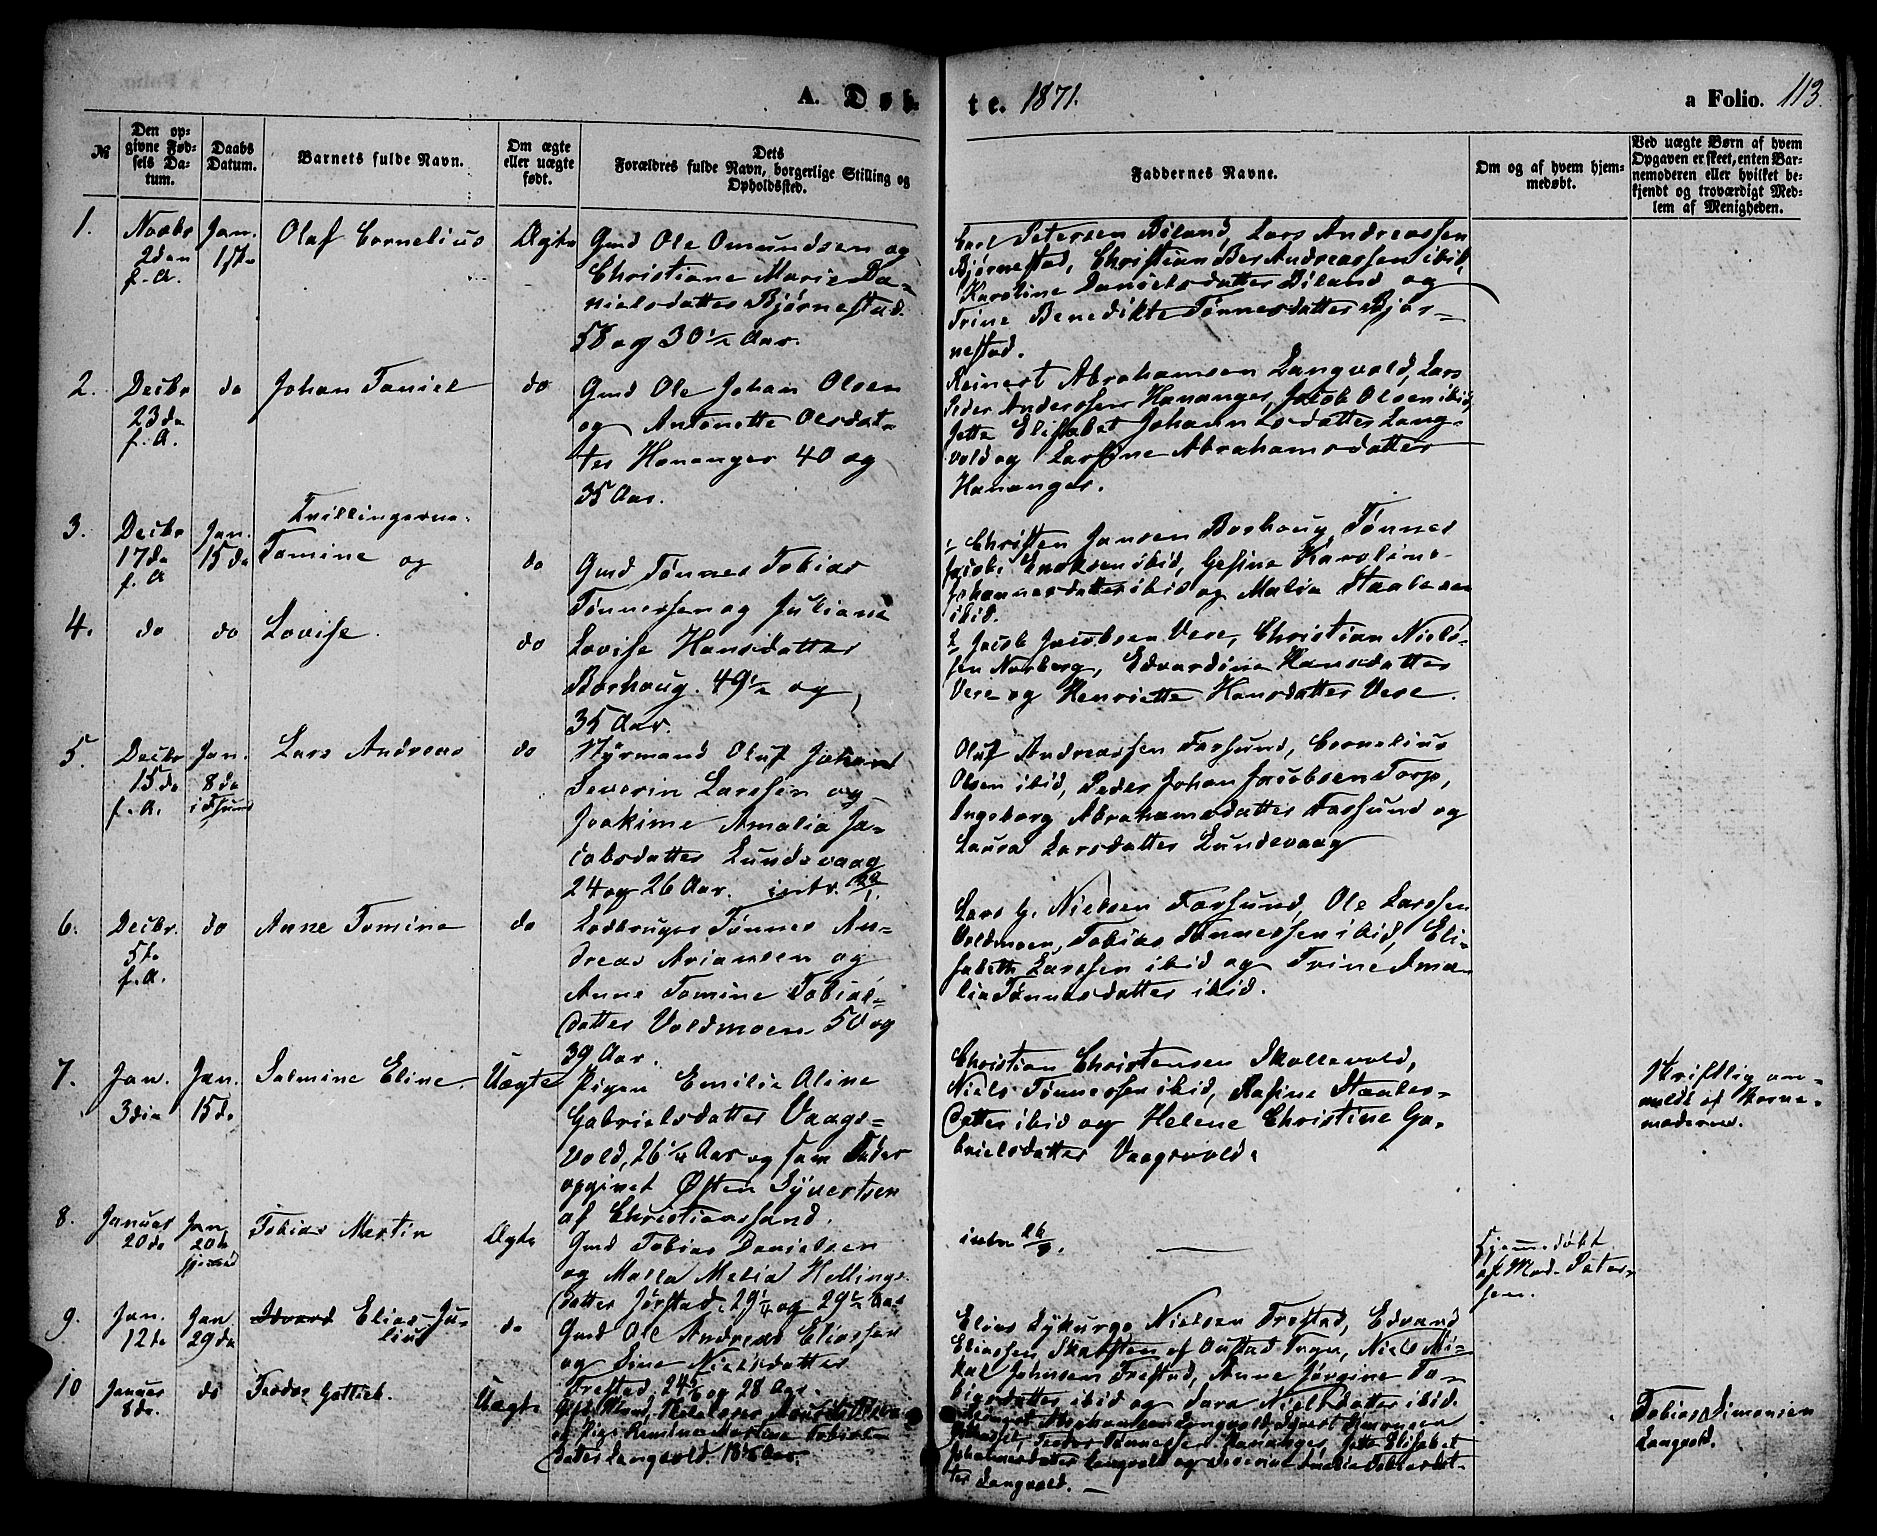 A. Døb-
te. 1871.
a Folio. 113.
№
Den op-
givne Fød-
sels Da-
tum.
Daabs
Datum.
Barnets fulde Navn.
Om ægte
eller uægte
født.
Dets
Forældres fulde Navn, borgerlige Stilling og
Opholdssted.
Faddernes Navne.
Om og af hvem hjem-
medøbt.
Ved uægte Børn af hvem
Opgaven er skeet, enten Bar-
nemoderen eller hvilket be-
kjendt og troværdigt Med-
lem af Menigheden.
1.
Novbr
2den
f. A.
Jan.
1ste
Olaf Cornelius
Ægte
Gmd Ole Omundsen og
Christiane Marie Da-
nielsdatter Bjørnestad
58 og 30½ Aar.
Carl Petersen Biland, Lars Andreassen
Bjørnestad, Christian Ber Andreassen ibid,
Karoline Danielsdatter Biland og
Trine Benedikte Tønnesdatter Bjør-
nestad.
2.
Decbr
23de
f. A.
do
Johan Taniel
do
Gmd Ole Johan Olsen
og Antonette Olsdat-
ter Hananger 40 og
35 Aar.
Reinert Abrahamsen Langvold, Lars
Peder Anderssen Hananger, Jakob Olsen ibid,
Jette Elisabet Johannesdatter Lang-
vold og Larsine Abrahamsdatter
Hananger.
3.
Decbr
17de
f. A
Jan.
15de
Tvillingerne.
Tomine og
do
Gmd Tønnes Tobias
Tønnessen og Juliane
Lovise Hansdatter
Borhoug. 49½ og
35 Aar.
1 Christen Jansen Borhoug, Tønnes
Jacob Enoksen ibid, Gesine Karoline
Johannesdatter ibid og Malia Staalesen
ibid.
4.
do
do
Lovise.
do
2 Jacob Jacobsen Vere, Christian Niels-
sen Norberg, Edvardine Hansdatter
Vere og Henriette Hansdatter Vere.
5.
Decbr
15de
f. A.
Jan.
8de
i Fsund
Lars Andreas
do
Styrmand Oluf Johan
Severin Larssen og
Joakime Amalia Ja-
cobsdatter Lundevaag
24 og 26 Aar. intr. 22/1.
Oluf Andreassen Farsund, Cornelius
Olsen ibid, Peder Johan Jacobsen Torp,
Ingeborg Abrahamsdatter Farsund og
Laura Larsdatter Lundevaag
6.
Decbr.
5te
f. A.
do
Anne Tomine
do
Ledbruger Tønnes An-
dreas Ariansen og
Anne Tomine Tobias-
datter Voldmoen 50 og
39 Aar.
Lars G. Nielsen Farsund, Ole Larssen
Voldmoen, Tobias Tønnessen ibid, Eli-
sabeth Larssen ibid og Trine Ama-
lia Tønnesdatter ibid.
7.
Jan.
3die
Jan.
15de
Salmine Eline
Uægte
Pigen Emilie Oline
Gabrielsdatter Vaags-
vold, 26¼ Aar og som Fader
opgivet Østen Syvertsen
af Christianssand.
Christian Christensen Skollevold,
Niels Tønnessen ibid, Rasine Staales-
datter ibid og Helene Christine Ga-
brielsdatter Vaagsvold.
Skriftlig an-
meldt af Barne-
moderen.
8.
Januar
20de
Jan
20de
Tobias Martin
Ægte
Gmd Tobias Danielsen
og Malla Malia Hellings-
datter Jørstad. 29¼ og 29½ Aar
intr 26/3.
Hjemmedøbt
af Mad. Peter-
sen.
9.
Jan.
12te
Jan
29de
Edvard Elias Ju-
lius
do
Gmd Ole Andreas Eliassen
og Sine Nielsdatter
Frestad, 24½ og 28 Aar.
Elias Lykurgo Nielsen Frestad, Edvard
Eliassen Skatsten af Oustad Sogn, Niels Mi-
kal Johnsen Frestad, Anne Jørgine To-
biasdatter ibid og Sara Nielsdatter ibid.
10
Januar
8de.
do
Teodor Gottlieb.
Uægte
og Pige
datter Langvold. 18
Johannesdatter Langvold og
ter Langvold.
Tobias Simonsen
Langvold.